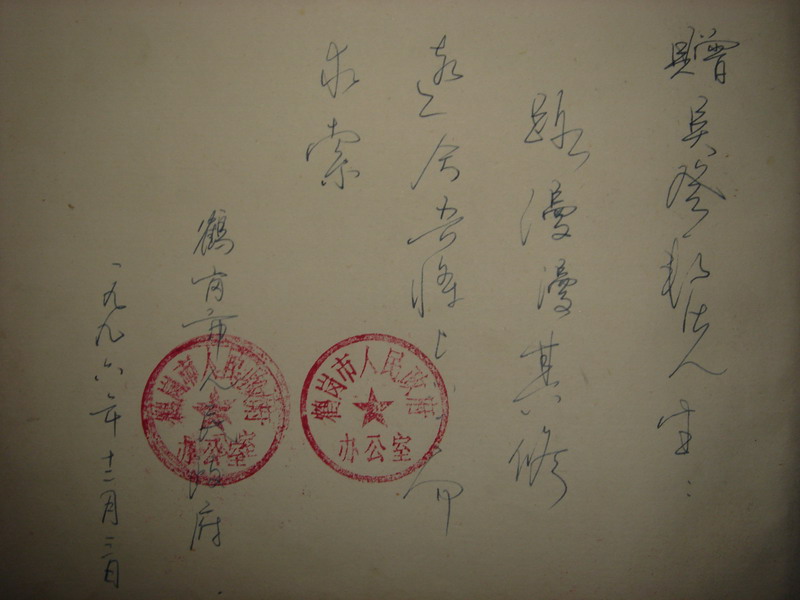 赠吴先生：
路漫漫其修
远兮吾将上下而
求索
鹤岗市人民政府
一九九六年十二月三日
鹤岗市人民政府
办公室
鹤岗市人民政府
办公室